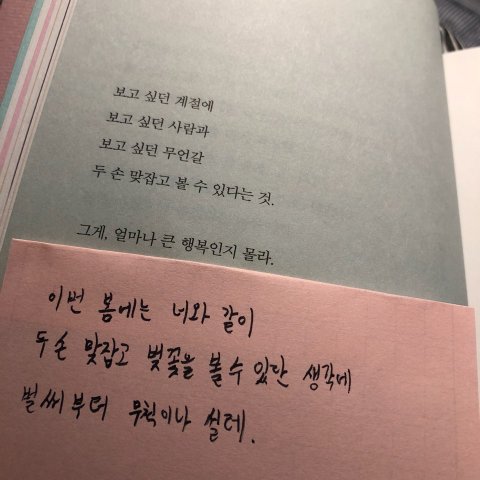 보고 싶던 계절에
보고 싶던 사람과
보고 싶던 무언갈
두 손 맞잡고 볼 수 있다는 것.
그게, 얼마나 큰 행복인지 몰라.
이번 봄에는 너와 같이
두 손 맞잡고 벚꽃을 볼 수 있단 생각에
벌써부터 무척이나 설테.